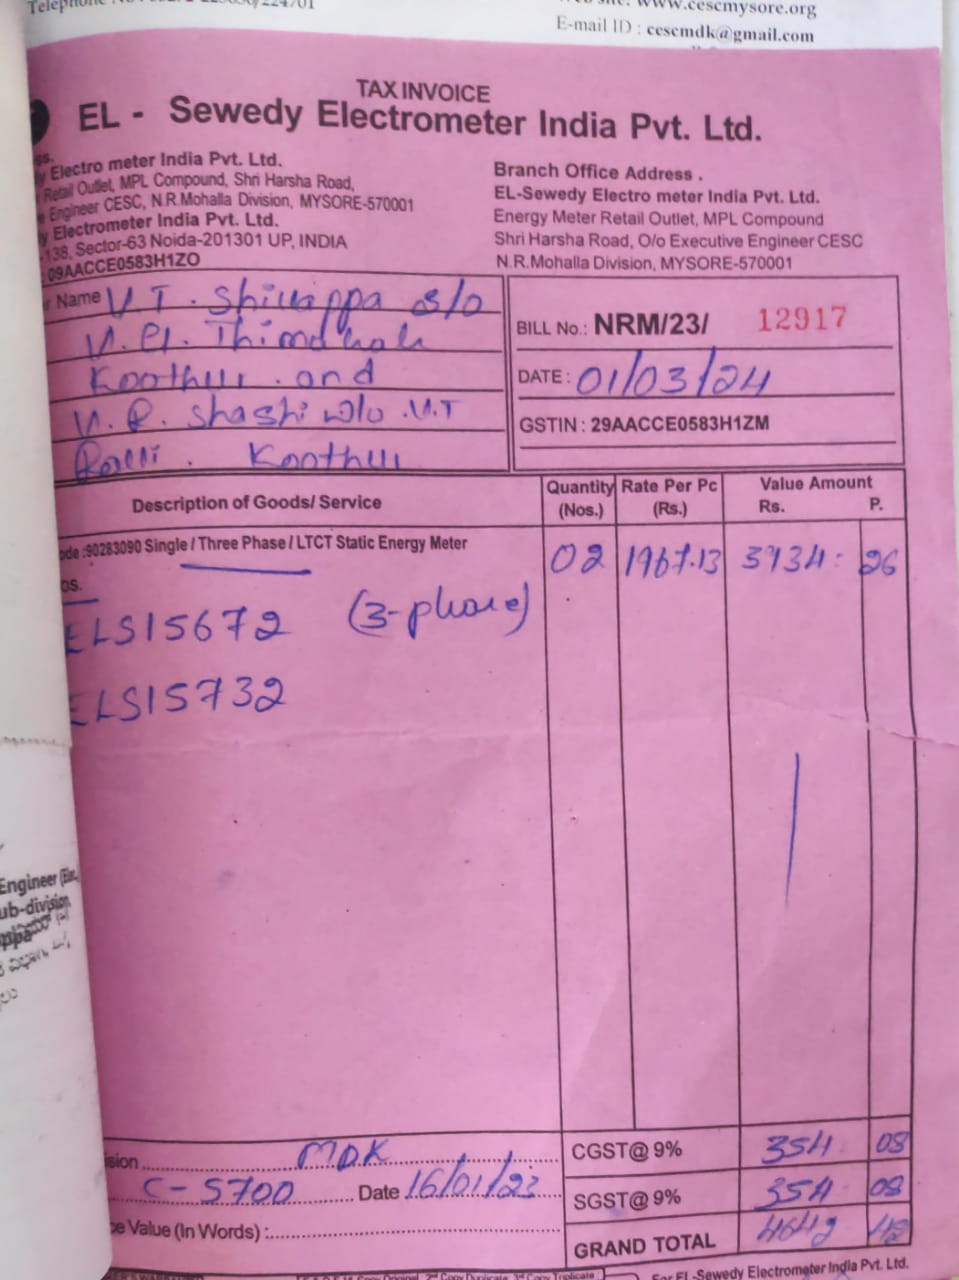 Telephone
224701
www.cescmysore.org
E-mail ID : cescmdk@gmail.com
TAX INVOICE
EL - Sewedy Electrometer India Pvt. Ltd.
Electro meter India Pvt. Ltd.
Retail Outlet, MPL Compound, Shri Harsha Road,
Engineer CESC, N.R.Mohalla Division, MYSORE-570001
Electrometer India Pvt. Ltd.
-138, Sector-63 Noida-201301 UP, INDIA
: 09AACCE0583H1ZO
Branch Office Address .
EL-Sewedy Electro meter India Pvt. Ltd.
Energy Meter Retail Outlet, MPL Compound
Shri Harsha Road, O/o Executive Engineer CESC
N.R.Mohalla Division, MYSORE-570001
Name V.T. Shivappa S/o
Koothur and
V.R. Shashi W/o V.T
Koothur
BILL No.: NRM/23/ 12917
DATE : 01/03/24
GSTIN : 29AACCE0583H1ZM
Description of Goods/ Service Quantity (Nos.) Rate Per Pc (Rs.) Value Amount Rs. P.
:90283090 Single / Three Phase / LTCT Static Energy Meter 02 1967.13 3934 26
ELS15672 (3-phase)
ELS15732
MDK
C-5700 Date 16/01/23
Value (In Words) :
CGST@ 9% 354 08
SGST@ 9% 354 08
GRAND TOTAL 4642 42
For EL-Sewedy Electrometer India Pvt. Ltd.
Engineer
ub-division